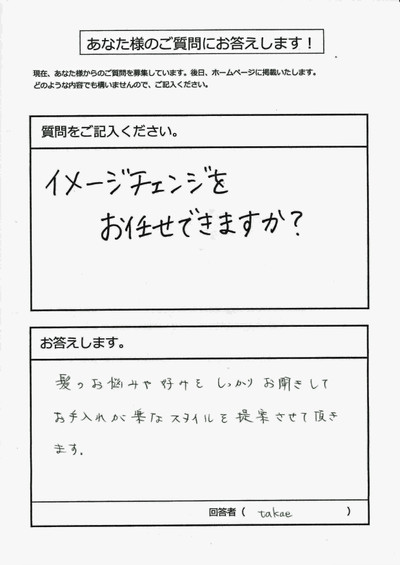 あなた様のご質問にお答えします！
現在、あなた様からのご質問を募集しています。後日、ホームページに掲載いたします。
どのような内容でも構いませんので、ご記入ください。
質問をご記入ください。
イメージチェンジを
お任せできますか？
お答えします。
髪のお悩みや好みを しっかり お聞きして
お手入れが楽なスタイルを提案させて頂き
ます.
回答者（ takae ）